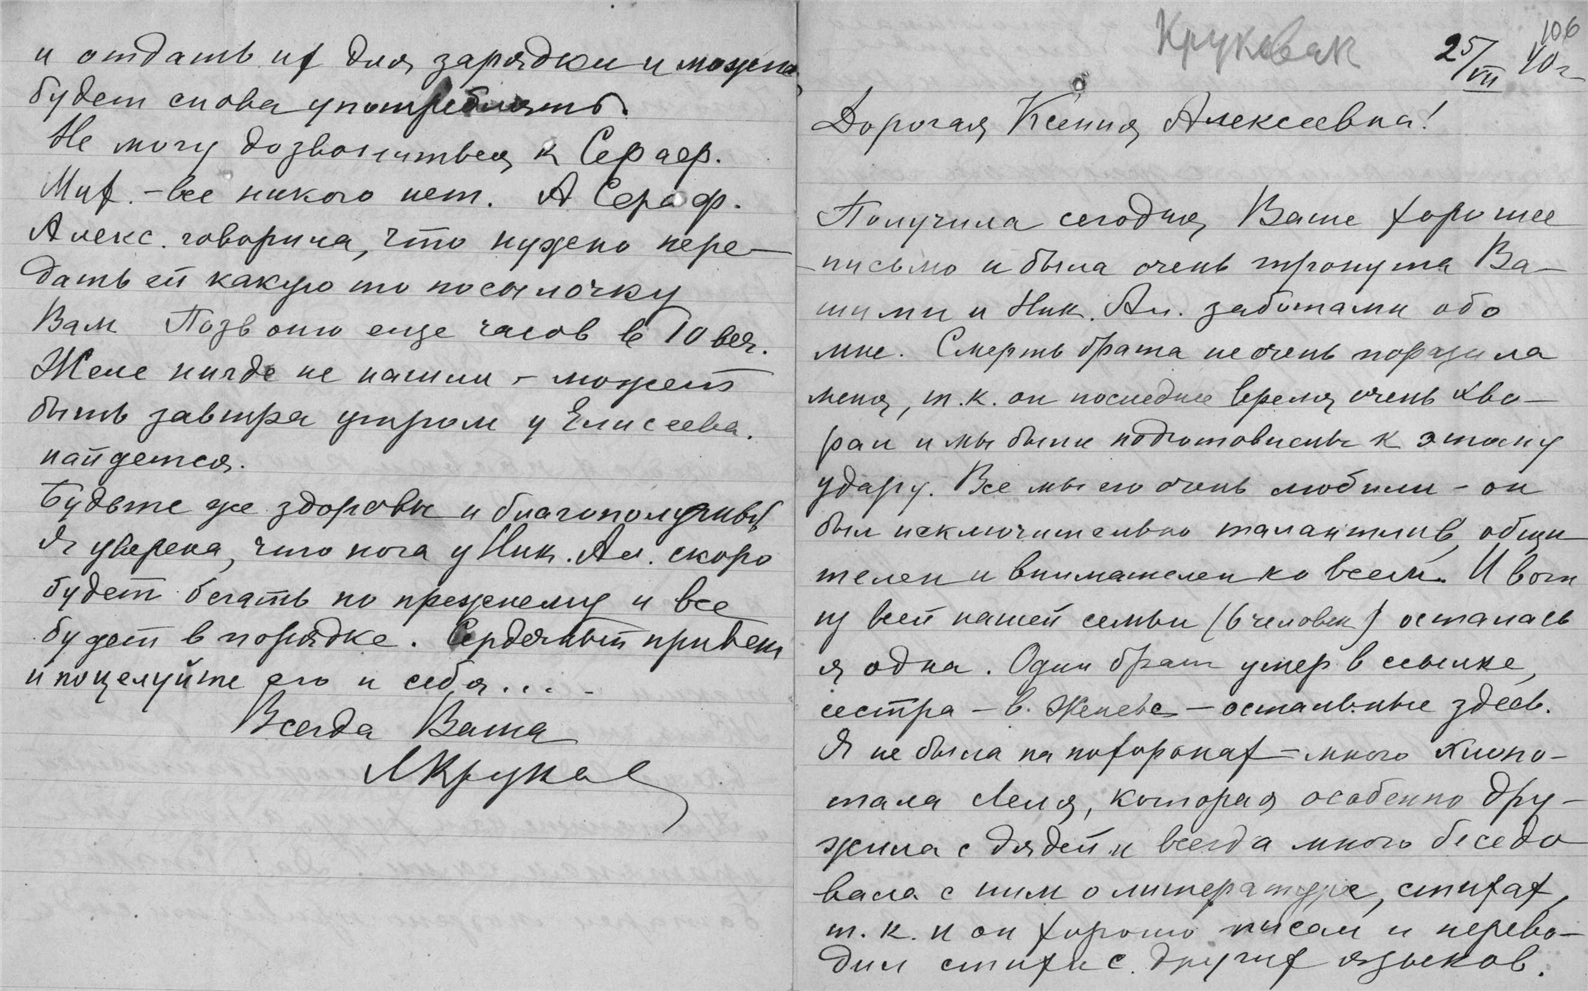 и отдать их для зарядки и можно
будет снова употреблять.
Не могу дозвониться к Сераф.
Мих. – все никого нет. А Сераф.
Алекс. говорила, что нужно пере–
дать ей какую то посылочку
Вам Позвоню еще часов в 10 веч.
Желе нигде не нашли – может
быть завтра утром у Елисеева.
найдется.
Будьте же здоровы и благополучны!
Я уверена, что нога у Ник. Ал. скоро
будет бегать по прежнему и все
будет в порядке. Сердечный привет
и поцелуйте его и себя....
Всегда Ваша
106
25/VII 40 г
Дорогая Ксения Алексеевна!
Получила сегодня, Ваше хорошее
письмо и была очень тронута Ва–
шими и Ник. Ал. заботами обо
мне. Смерть брата не очень поразила
меня, т.к. он последнее время очень хво–
рал и мы были подготовлены к этому
удару. Все мы его очень любили – он
был исключительно талантлив, общи
телен и внимателен ко всем. И вот
из всей нашей семьи (6 человек) осталась
я одна. Один брат умер в ссылке,
сестра – в. Женеве – остальные здесь.
Я не была на похоронах – много хлопо–
тала Леля, которая особенно дру–
жила с дядей и всегда много беседо
вала с ним о литературе, стихах,
т.к. и он хорошо писал и перево–
дил стихи с других языков.